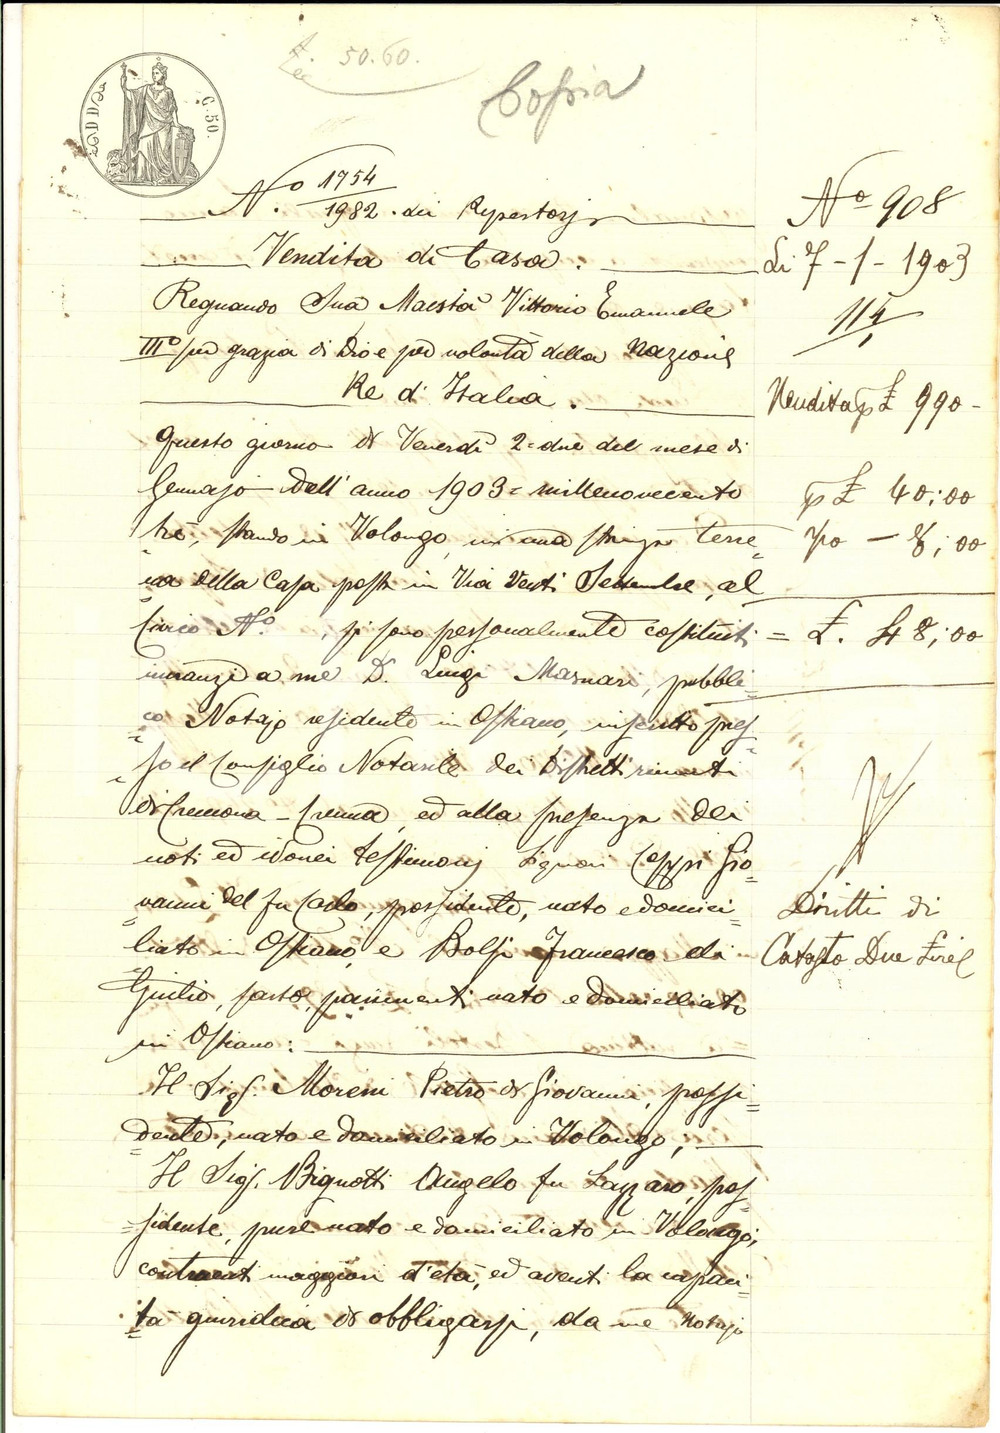 £. 50.60.
Copia
C. 50.
N.° 1754/1982. dei Repertorj
Vendita di Casa.
Regnando Sua Maestà Vittorio Emanuele
III° per grazia di Dio e per volontà della Nazione
Re d'Italia.
Questo giorno di Venerdì 2= due del mese di
Gennajo dell'anno 1903= millenovecento
tre, stando in Volongo, in una stanza terre=
=na della Casa posta in Via Venti Settembre, al
Civico N.° , si sono personalmente costituiti
innanzi a me D. Luigi Masnari, pubbli=
=co Notajo residente in Ostiano, inscritto pres=
=so il Consiglio Notarile dei Distretti riuniti
di Cremona - Crema, ed alla presenza dei
noti ed idonei testimonj Signori Ceppi Gio=
vanni del fu Carlo, possidente, nato e domici=
liato in Ostiano, e Bolsi Francesco di
Giulio, sarto, parimenti nato e domiciliato
in Ostiano:
Il Sig. Moreni Pietro di Giovanni, possi=
=dente, nato e domiciliato in Volongo;
Il Sig. Bignotti Angelo fu Lazzaro, pos=
=sidente, pure nato e domiciliato in Volongo;
contraenti maggiori d'età, ed aventi la capaci=
=tà giuridica di obbligarsi, da me Notajo
N° 908
Li 7-1-1903
114
Vendita p £ 990-
p £ 40;00
- 8;00
= £. 48;00
Diritti di
Catasto Due Lire